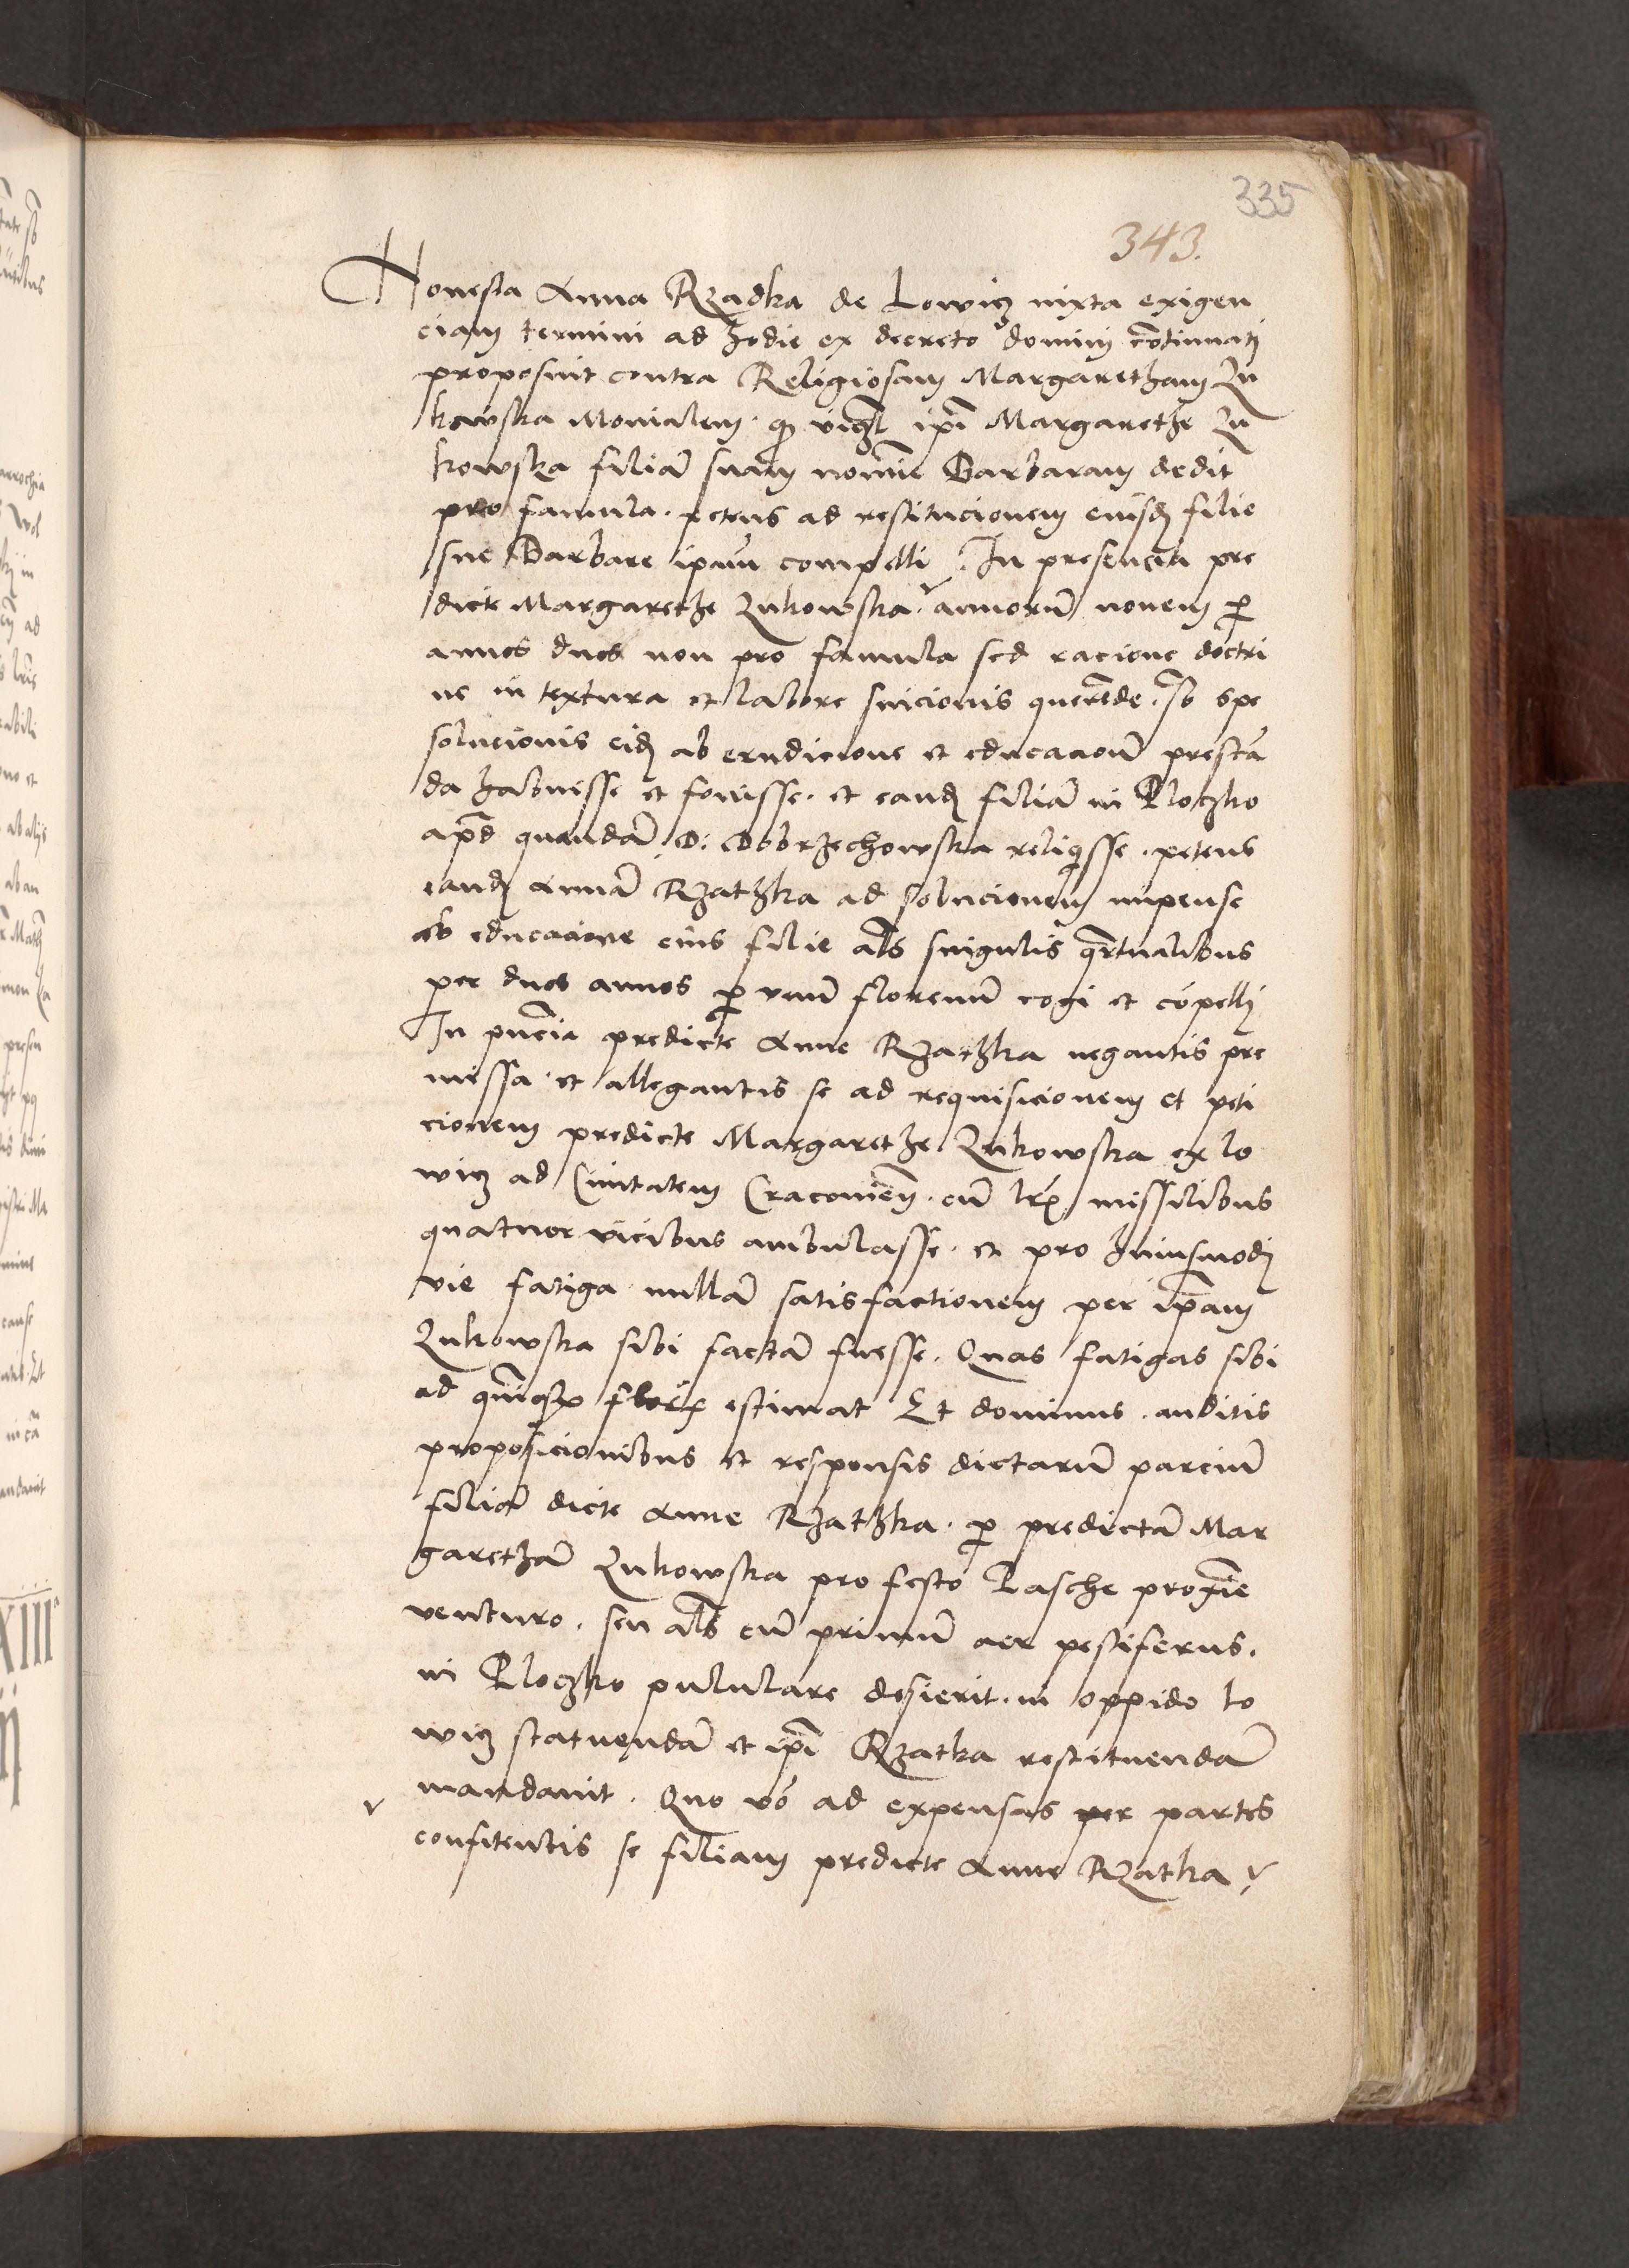 335
343.
Honesta Anna Rzadka de Lowicz iuxta exigen
ciam termini ad hodie ex decreto domini cōtinuati
proposuit contra Religiosam Margaretham Zu
kowska Monialem. ip̄i Margarethe Zu
kowska filiā suam noīe Barbaram dedit
pro famula. petens ad restitucionem eiusdē filie
sue Barbare ip̄am compelli. In presencia pre
dicte Margarethe Zukowska. v annorū novem p
annos duos non pro famula sed racione doctri
ne in textura et labore suicionis querēde. sb spe
solucionis eidē ab erudicione et educacionē prestā
da habuisse et fovisse. et eandē filiā in Ploczko
apud quandā D: Dobrzechowska reliquisse. petens
eandē Annā Rzathka ad solucionem impense
ab educacione eius filie als singulis qrtualibus
per duos annos p unū florenū cogi et cōpelli
In pn̄cia predicte Anne Rzathka negantis pre
missa. et allegantis se ad requisicionem et peti
cionem predicte Margarethe Zukowska ex Lo
wicz ad Civitatem Cracovien̄. cū lrīs missilibus
quatuor vicibus ambulasse. et pro huiusmodi
vie fatiga nullā satisfactionem per ip̄am
Zukowska sibi factā fuisse. Quas fatigas sibi
ad estimat Et dominus. auditis
proposicionibus et responsis dictarū parciū
filiā dicte Anne Rzathka. p predictā Mar
garethā Zukowska pro festo Pasche proxīe
venturo. seu als cū primū aer pestiferus.
in Ploczko pululare desierit. in oppido Lo
wicz statuendā et ip̄i Rzatka restituendā
mandavit. Quo vo ad expensas per partes
v confitentis se filiam predicte Anne Rzatka v